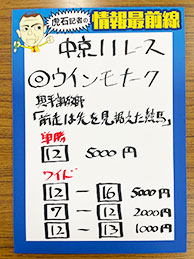 虎石記者の
情報最前線
中京11レース
◎ウインモナーク
「前走は先を見据えた競馬」
単勝
12 5000円
ワイド
12 - 16 5000円
7 - 12 2000円
12 - 13 1000円